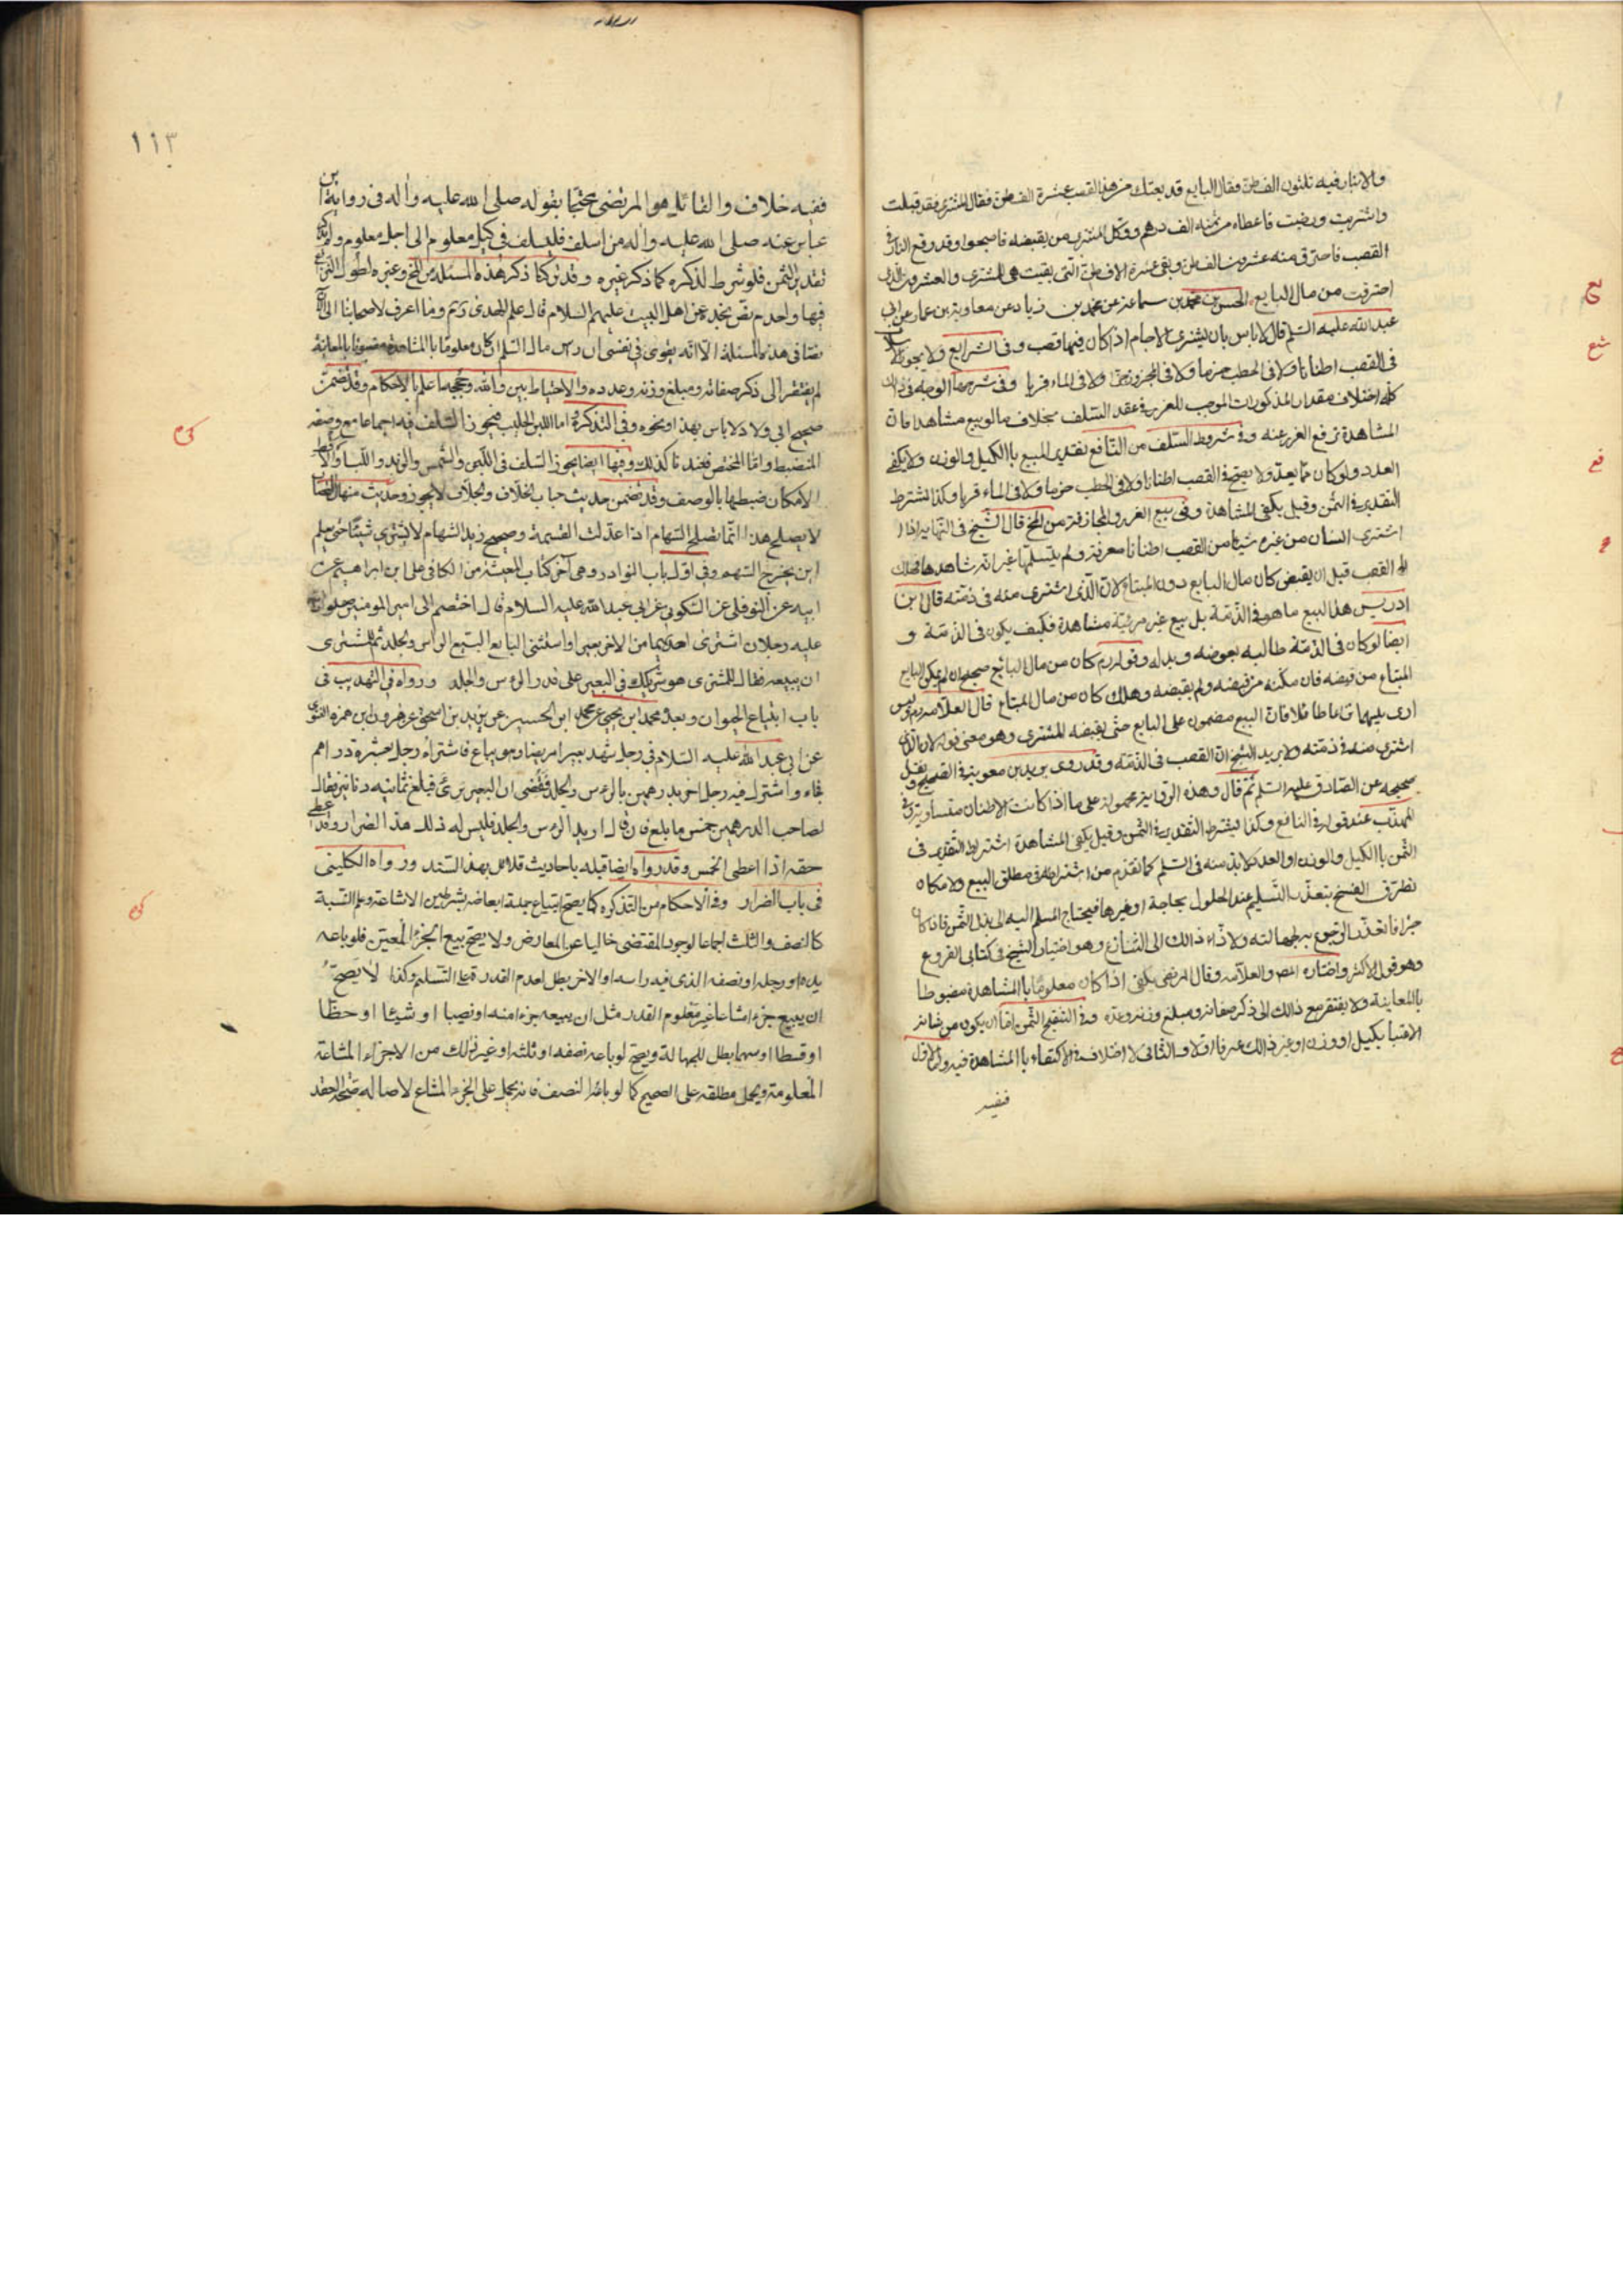 والانبار فيه ثلثون الف طن فقال البايع قد بعتك من هذا القصب عشرة الف طن فقال المشتري فقد قبلت
واشتريت ورضيت فاعطاه من ثمنه الف درهم ووكل المشتري من يقبضه فاصبحوا وقد وقع النار في
القصب فاحترق منه عشرون الف طن وبقي عشرة الاف طن التي بقيت هي للمشتري والعشرون التي
احترقت من مال البايع الحسن بن محمد بن سماعة عن محمد بن زياد عن معاوية بن عمار عن ابي
عبد الله عليه السلم قال لا باس بان يشتري الاجام اذا كان فيها قصب وفي الشرايع ولا يجوز السلف
في القصب اطنانا ولا في الحطب حزما ولا في المجزوز جزا ولا في الماء قربا وفي شرحها الوجه في ذلك
كله اختلاف مقدار المذكورات الموجب للغرر في عقد السلف بخلاف ما لو بيع مشاهدا فان
المشاهدة ترفع الغرر عنه وفي شروط السلف من النافع تقدير المبيع باالكيل والوزن ولا يكفي
العدد ولو كان مما يعد ولا يصح في القصب اطنانا ولا في الحطب حزما ولا في الماء قربا وكذا يشترط
التقدير في الثمن وقيل يكفي المشاهدة وفي بيع الغرر والمجازفة من المخ قال الشيخ في النهاية اذا
اشترى انسان من غيره شيئا من القصب اطنانا معرفة ولم يتسلمها غير انه شاهدها فهلك
القصب قبل ان يقبض كان من مال البايع دون المبتاع لان الذي اشترى منه في ذمته قال ابن
ادريس هذا البيع ما هو في الذمة بل بيع عين مرئية مشاهدة فكيف يكون في الذمة و
ايضا لو كان في الذمة طالبه بعوضه وبدله وقوله ره كان من مال البايع صحيح ان لم يمكن البايع
المبتاع من قبضه فان مكنه من قبضه ولم يقبضه وهلك كان من مال المبتاع قال العلامة ره وليس
ارى بينهما فان البيع مضمون على البايع حتى يقبضه المشتري وهو معنى قوله لان الذي
اشترى منه في ذمته ولا يريد الشيخ ان القصب في الذمة وقد روى بريد بن معوية في الصحيح ونقل
صحيحه عن الصادق عليه السلم ثم قال وهذه الرواية محمولة على ما اذا كانت الاطنان متساوية وفي
المهذب عند قوله في النافع وكذا يشترط التقدير في الثمن وقيل يكفي المشاهدة اشتراط التقدير في
الثمن باالكيل والوزن او العدد لابد منه في السلم كما تقدم من اشتراطه في مطلق البيع ولامكان
تطرق الفسخ بتعذر التسليم عند الحلول بحاجة او غيرها فيحتاج المسلم اليه الى بذل الثمن فاذا كان
جزافا تعذر الرجوع به لجهالته ولادّاه ذالك الى التنازع وهو اختيار الشيخ في كتابي الفروع
وهو قول الاكثر واختاره المص والعلامة وقال المرتضى يكفي اذا كان معلوما باالمشاهدة مضبوطا
باالمعاينة ولا يفتقر مع ذالك الى ذكر صفاته ومبلغ وزنه وعدده وفي التنقيح الثمن اما ان يكون من شانه
الاعتبار بكيل او وزن او غير ذالك عرفا او لا والثاني لا اختلاف في الاكتفاء باالمشاهدة فيه واما الاول
ففيه
١١٣
ففيه خلاف والقائل هو المرتضى محتجا بقوله صلى الله عليه واله في رواية ابن
عباس عنه صلى الله عليه واله من اسلف فليسلف في كيل معلوم الى اجل معلوم ولم يذكر
تقدير الثمن فلو شرط لذكره كما ذكر غيره وقد تركنا ذكر هذه المسئلة من المخ وغيره لطول
فيها ولعدم نص نجد عن اهل البيت عليهم السلام قال علم الهدى ره وما اعرف لاصحابنا الى الآن
نصا في هذه المسئلة الا انه يقوى في نفسي ان راس مال السلم ان كان معلوما باالمشاهدة مضبوطا بالمعاينة
لم يفتقر الى ذكر صفاته ومبلغ وزنه وعدده والاحتياط بين والله وحججه اعلم بالاحكام وقد تضمن
صحيح ابي ولاد لا باس بهذا ونحوه وفي التذكرة اما اللبن الحليب فيجوز السلف فيه اجماعا مع وصفه
المنضبط واما المخيض فعندنا كذلك وفيها ايضا يجوز السلف في اللبن والسمن والزبد واللباء والاقط
لامكان ضبطها بالوصف وقد تضمن حديث حباب الخلاف والجلاف لا يجوز وحديث منهال القصاب
لا يصلح هذا انما يصلح السهام اذا عدلت القسمة وصحيح زيد الشهام لا يشتري شيئا حتى يعلم
اين يخرج السهم وفي اول باب النوادر وهي آخر كتاب المعيشة من الكافي علي ابن ابراهيم عن
ابيه عن النوفلي عن السكوني عن ابي عبد الله عليه السلام قال اختصم الى امير المومنين صلوات الله
عليه رجلان اشترى احدهما من الاخر بعيرا واستثنى البايع البيع الراس والجلد ثم للمشترى
ان يبيعه فقال للمشتري هو شريكك في البعير على قدر الراس والجلد ورواه في التهذيب في
باب ابتياع الحيوان وبعده محمد ابن يحيى عن محمد ابن الحسين عن يزيد بن اسحق عن هرون ابن حمزه الغنوي
عن ابي عبد الله عليه السلام في رجل شهد بعيرا مريضا وهو يباع فاشتراه رجل بعشرة دراهم
فجاء واشترك فيه رجل اخر بدرهمين بالراس والجلد فقضى ان البعير برئ فبلغ ثمانيه دنانير فقال
لصاحب الدرهمين خمس ما بلغ فان قال اريد الراس والجلد فليس له ذلك هذا الضرار وقد اعطى
حقه اذا اعطى الخمس وقد رواه ايضا قبله باحاديث قلائل بهذا السند ورواه الكليني
في باب الضرار وفي الاحكام من التذكره كما يصح ابتياع جملة ابعاضه بشرطين الاشاعة وعلم النسبة
كالنصف والثلث اجماعا لوجود المقتضى خاليا عن المعارض ولا يصح بيع الجزء المعين فلو باعه
يده او رجله او نصفه الذي فيه راسه او الاخر بطل لعدم القدرة على التسليم وكذا لا يصح
ان يبيع جزء مشاعا غير معلوم القدر مثل ان يبيعه جزء منه او نصيبا او شيئا او حظا
او قسطا او سهما بطل للجهالة ويصح لو باعه نصفه او ثلثه او غير ذلك من الاجزاء المشاعة
المعلومة ويحمل مطلقه على الصحيح كما لو باعه النصف فانه يحمل على الجزء المشاع لاصالة صحة العقد